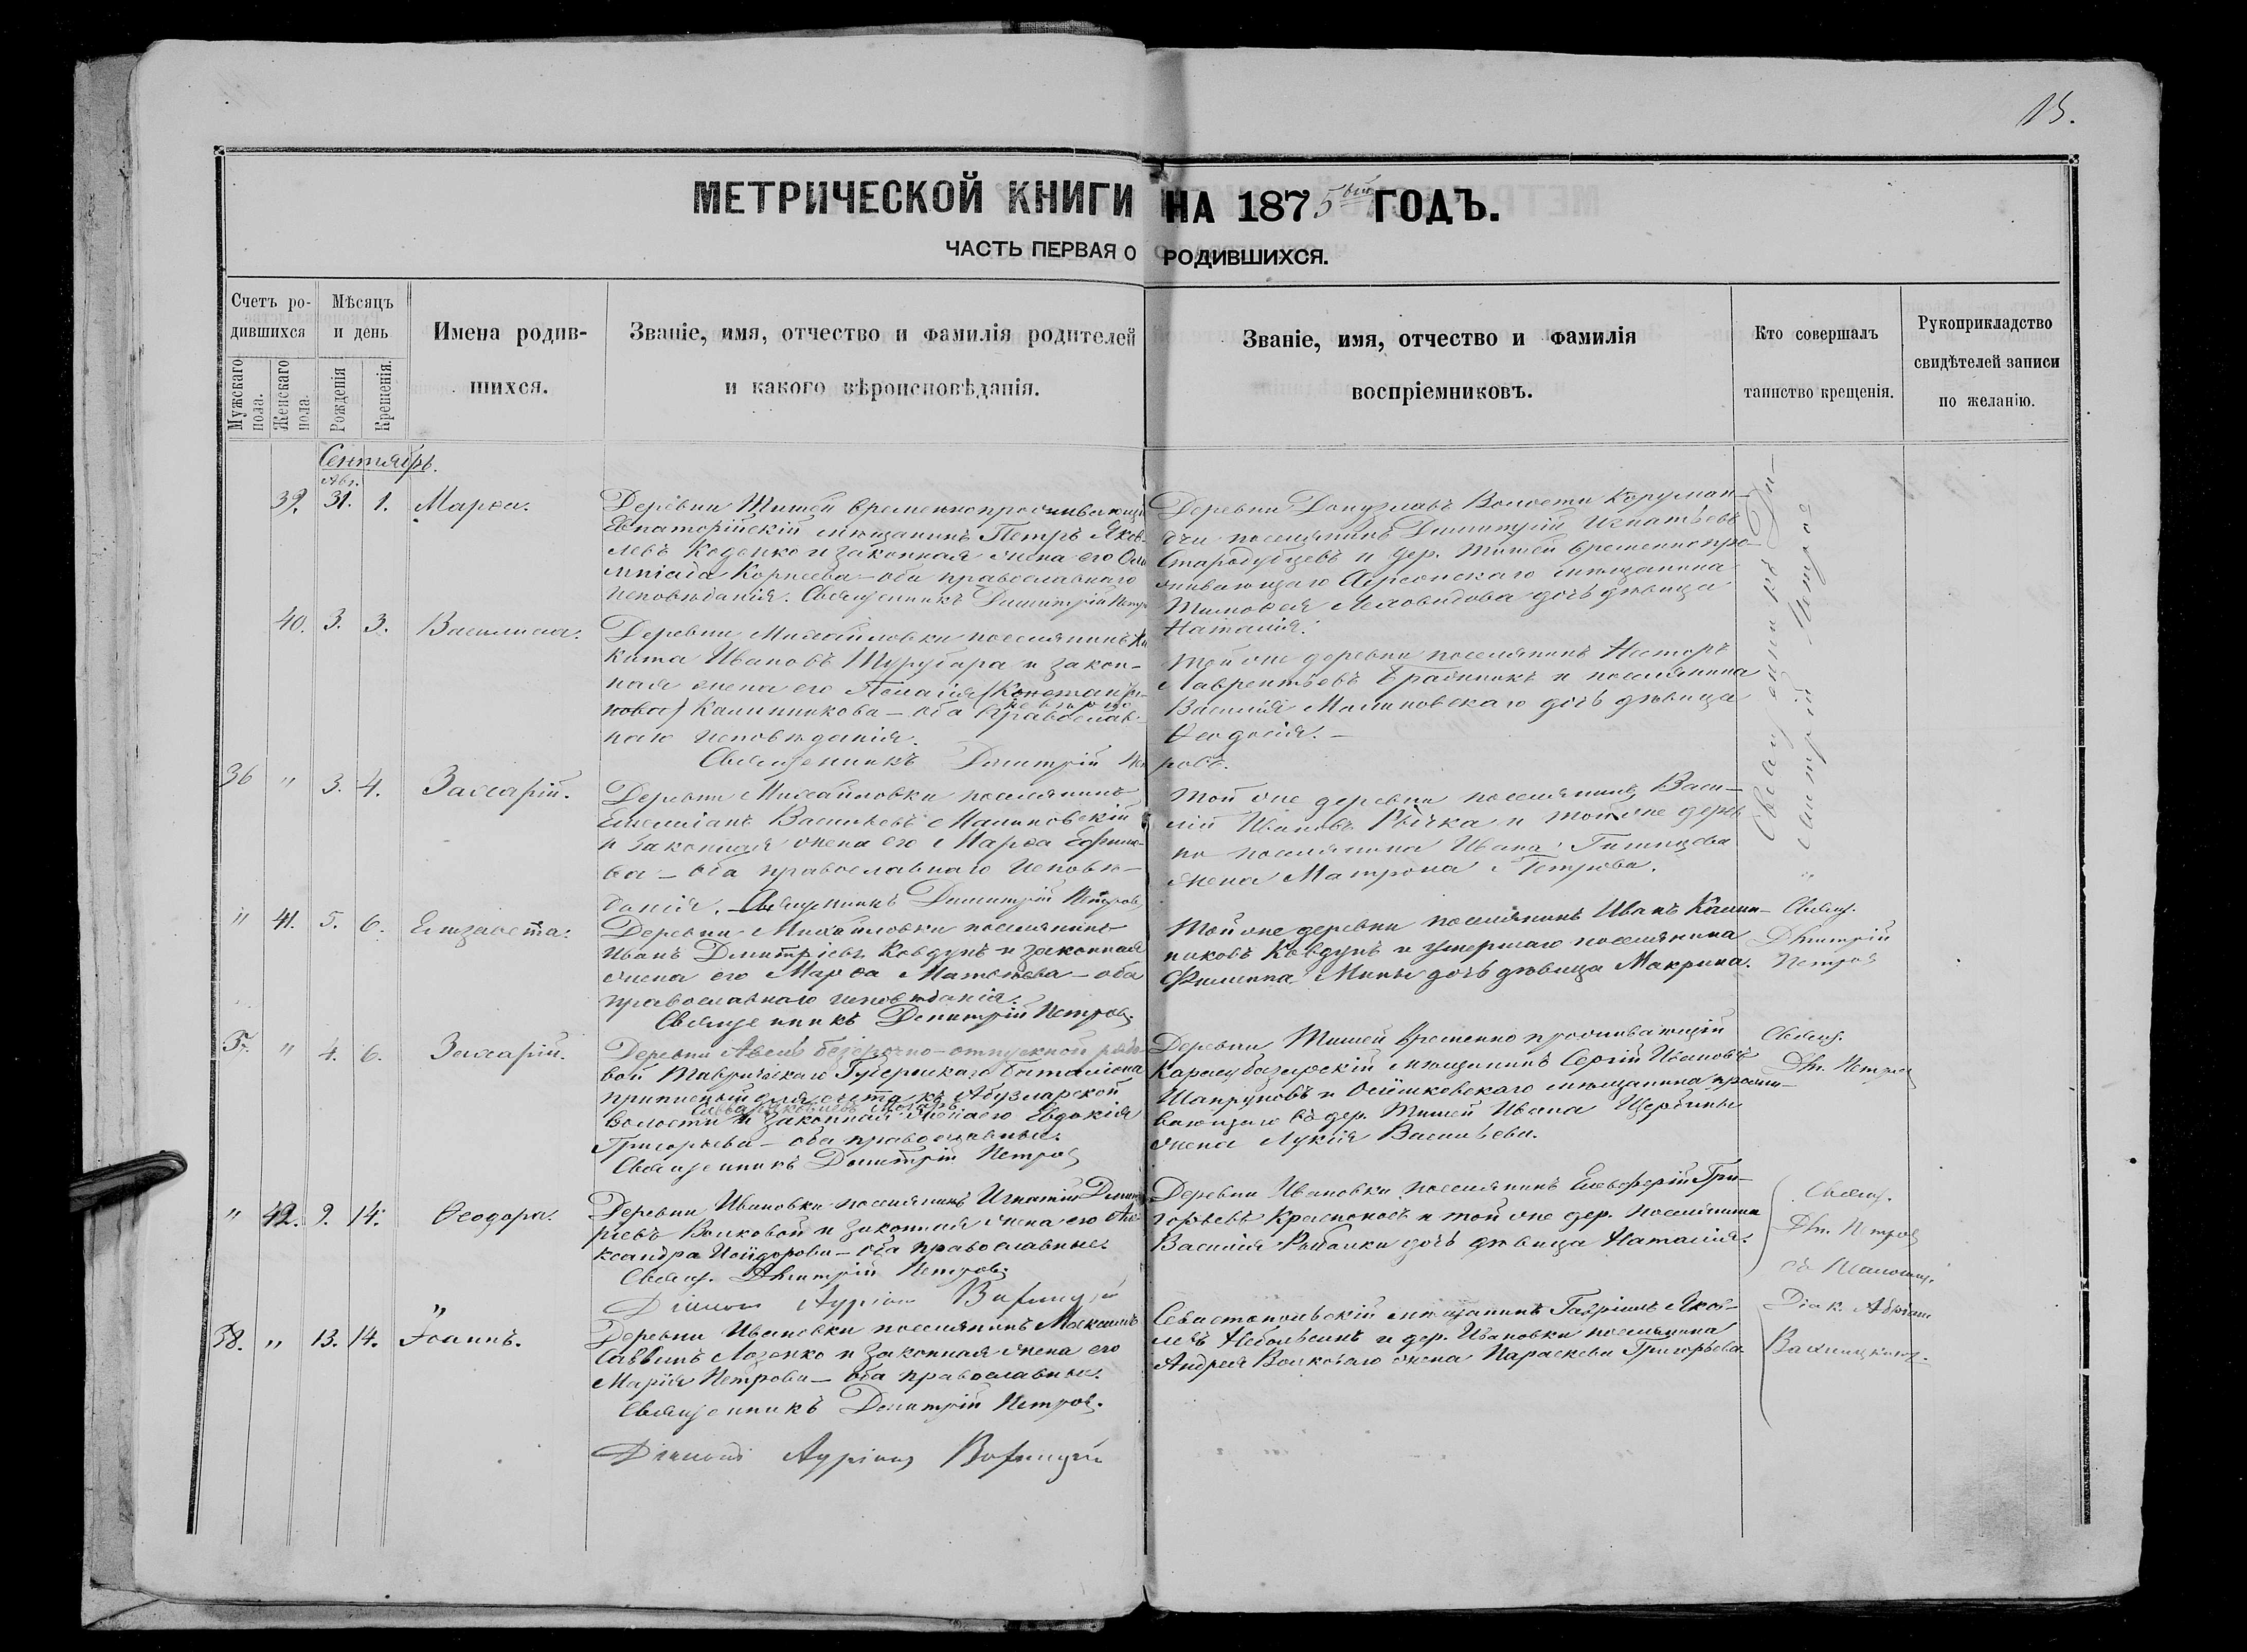 15.
МЕТРИЧЕСКОЙ КНИГИ НА 1875 ГОДЪ.
ЧАСТЬ ПЕРВАЯ О РОДИВШИХСЯ.
Счетъ родившихся
Мужскаго пола.
Женскаго пола.
Мѣсяцъ и день
Рожденія
Крещенія.
Имена родив-
шихся.
Званіе, имя, отчество и фамилія родителей
и какого вѣроисповѣданія.
Званіе, имя, отчество и фамилія
воспріемниковъ.
Кто совершалъ
таинство крещенія.
Рукоприкладство
свидѣтелей записи
по желанію.
Сентябрь.
Авг.
39. 31. 1. Марѳа.
Деревни Тишей временнопроживающій
Евпаторійскій мѣщанинъ Петръ Яков-
левъ Коденко и законная жена его Оли
мпіада Корнеева – оба православнаго
исповѣданія. Священникъ Димитрій Петр
Деревни Донузлавъ Волости
поселянинъ Димитрій Игнатьевъ
Стародубцевъ и дер. Тишей временнопро-
живающаго Херсонскаго мѣщанина
Тимоѳея дочь дѣвица
Наталія.
Священникъ Ди-
митрій Петров
40. 3. 3. Василисса.
Деревни Михайловки поселянинъ Ни
кита Ивановъ и закон-
ная жена его Пелагія Константи-
нова Калинникова – оба православ-
наго исповѣданія.
Священникъ Димитрій Пет
ровъ.
Той же деревни поселянинъ Несторъ
Лаврентьевъ и поселянина
Василія Малиновскаго дочь дѣвица
Ѳеодосія. –
36 " 3. 4. Захарій.
Деревни Михайловки поселянинъ
Емеліанъ Васильевъ Малиновскій
и законная жена его Марѳа Ефимо-
ва – оба православнаго исповѣ-
данія. – Священникъ Димитрій Петров
Той же деревни поселянинъ Васи-
лій Ивановъ Рычка и той же дерев
ни поселянина Ивана
жена Матрона Петрова.
" 41. 5. 6. Елизавета.
Деревни Михайловки поселянинъ
Иванъ Дмитріевъ Ковдунъ и законная
жена его Марѳа Матвѣева – оба
православнаго исповѣданія.
Священникъ Димитрій Петров.
Той же деревни поселянинъ Иванъ Калин-
никовъ Ковдунъ и умершаго поселянина
Филиппа Мины дочь дѣвица Макрина.
Свящ.
Дмитрій
Петров
" 4. 6. Захарій.
Деревни безсрочно-отпускной рядо
вой Таврическаго Губернскаго баталіона
приписный для счета къ Абузларской
волости и законная жена его Евдокія
Григорьева – оба православные.
Священникъ Димитрій Петров
Деревни Тишей временно проживающій
Карасубазарскій мѣщанинъ Сергій Ивановъ
Шапруновъ и мѣщанина прожи-
вающаго въ дер. Тишей Ивана Щербины
жена Лукія Васильева.
Свящ.
Дм. Петров
" 42. 9. 14. Ѳеодора.
Деревни Ивановки поселянинъ Игнатій Димит
ріевъ Волковой и законная жена его Але
ксандра – оба православные.
Свящ. Дмитрій Петров.
Діаконъ
Деревни Ивановки поселянинъ Елевферій Гри-
горьевъ и той же дер. поселянина
Василія Рыбалки дочь дѣвица Наталія.
Свящ.
Дм. Петров
38. " 13. 14. Іоаннъ.
Деревни Ивановки поселянинъ Максимъ
Саввинъ Лозенко и законная жена его
Марія Петрова – оба православные.
Священникъ Димитрій Петров.
Діаконъ
Севастопольскій мѣщанинъ Гавріилъ Яков-
левъ Небольсинъ и дер. Ивановки поселянина
Андрея Волковаго жена Параскева Григорьева.
Діак.